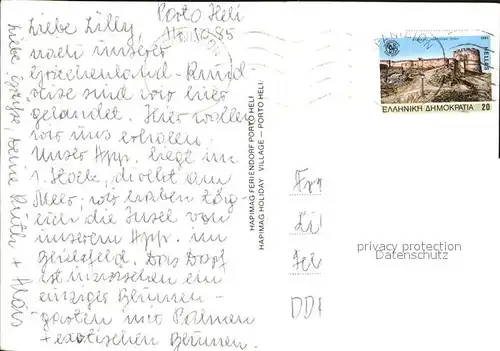 Porto Heli
Liebe Lilly, 11.10.85
nach unserer
Griechenland-Rund
reise sind wir hier
gelandet. Hier wollen
wir uns erholen.
Unser App. liegt im
1. Stock, direkt am
Meer, wir haben täg
lich die Insel von
unserem App. im
Blickfeld. Das Dorf
ist inzwischen ein
einziger Blumen-
garten mit Palmen
+ exotischen Blumen.
Liebe Grüße, deine Ruth + Alois
HAPIMAG FERIENDORF PORTO HELI
HAPIMAG HOLIDAY VILLAGE – PORTO HELI
HELLAS
ΕΛΛΗΝΙΚΗ ΔΗΜΟΚΡΑΤΙΑ 20
Lil
DDR
privacy protection
Datenschutz